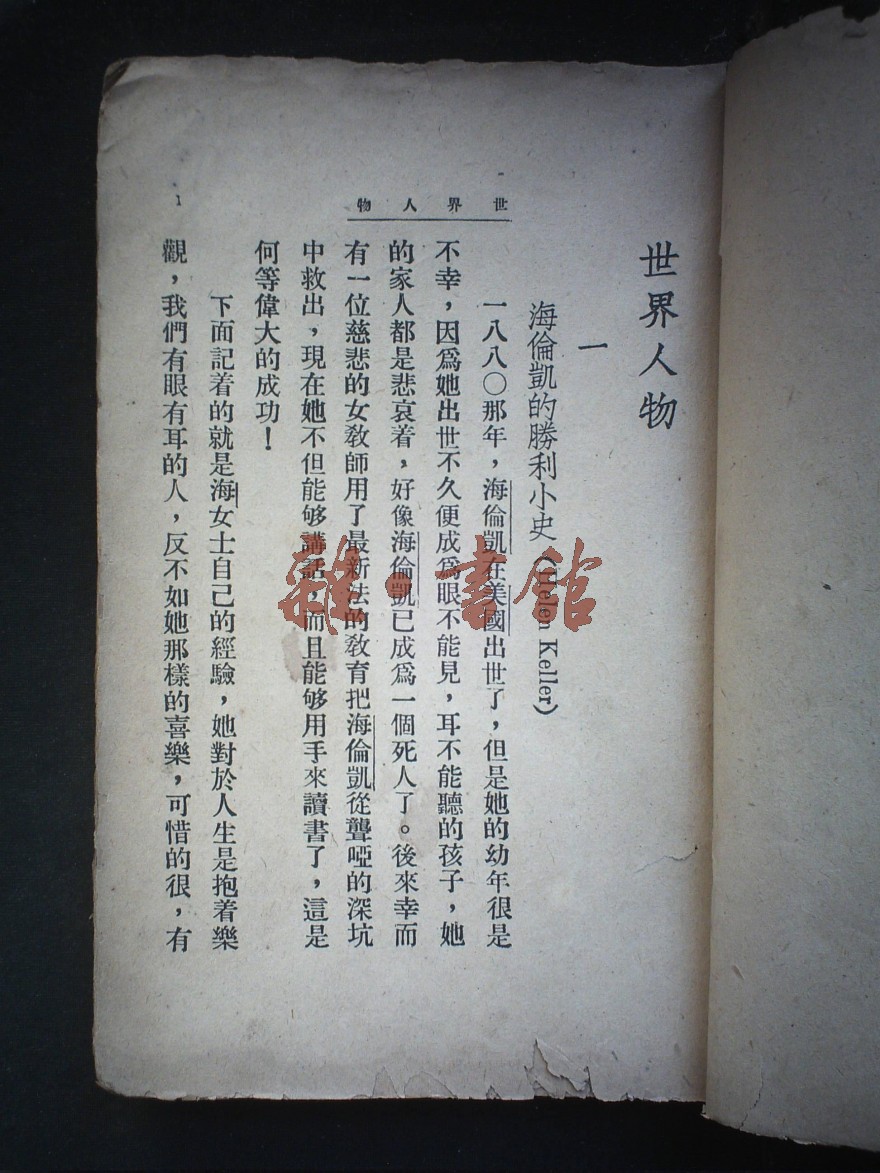 世界人物
世界人物
一
海倫凱的勝利小史(Helen Keller)
一八八〇那年，海倫凱在美國出世了，但是她的幼年很是
不幸，因爲她出世不久便成爲眼不能見，耳不能聽的孩子，她
的家人都是悲哀着，好像海倫凱已成爲一個死人了。後來幸而
有一位慈悲的女教師用了最新法的教育把海倫凱從聾啞的深坑
中救出，現在她不但能够講話，而且能够用手來讀書了，這是
何等偉大的成功！
下面記着的就是海女士自己的經驗，她對於人生是抱着樂
觀，我們有眼有耳的人，反不如她那樣的喜樂，可惜的很，有
1
雜·書館